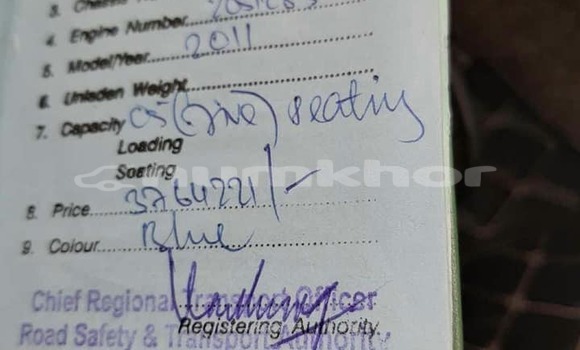 3. Chassis
4. Engine Number
5. Model/Year 2011
6. Unladen Weight
7. Capacity 05 (five) seating
Loading
Seating
8. Price 3764221/-
9. Colour Blue
Chief Regional Transport Officer
Registering Authority.
Road Safety & Transport Authority